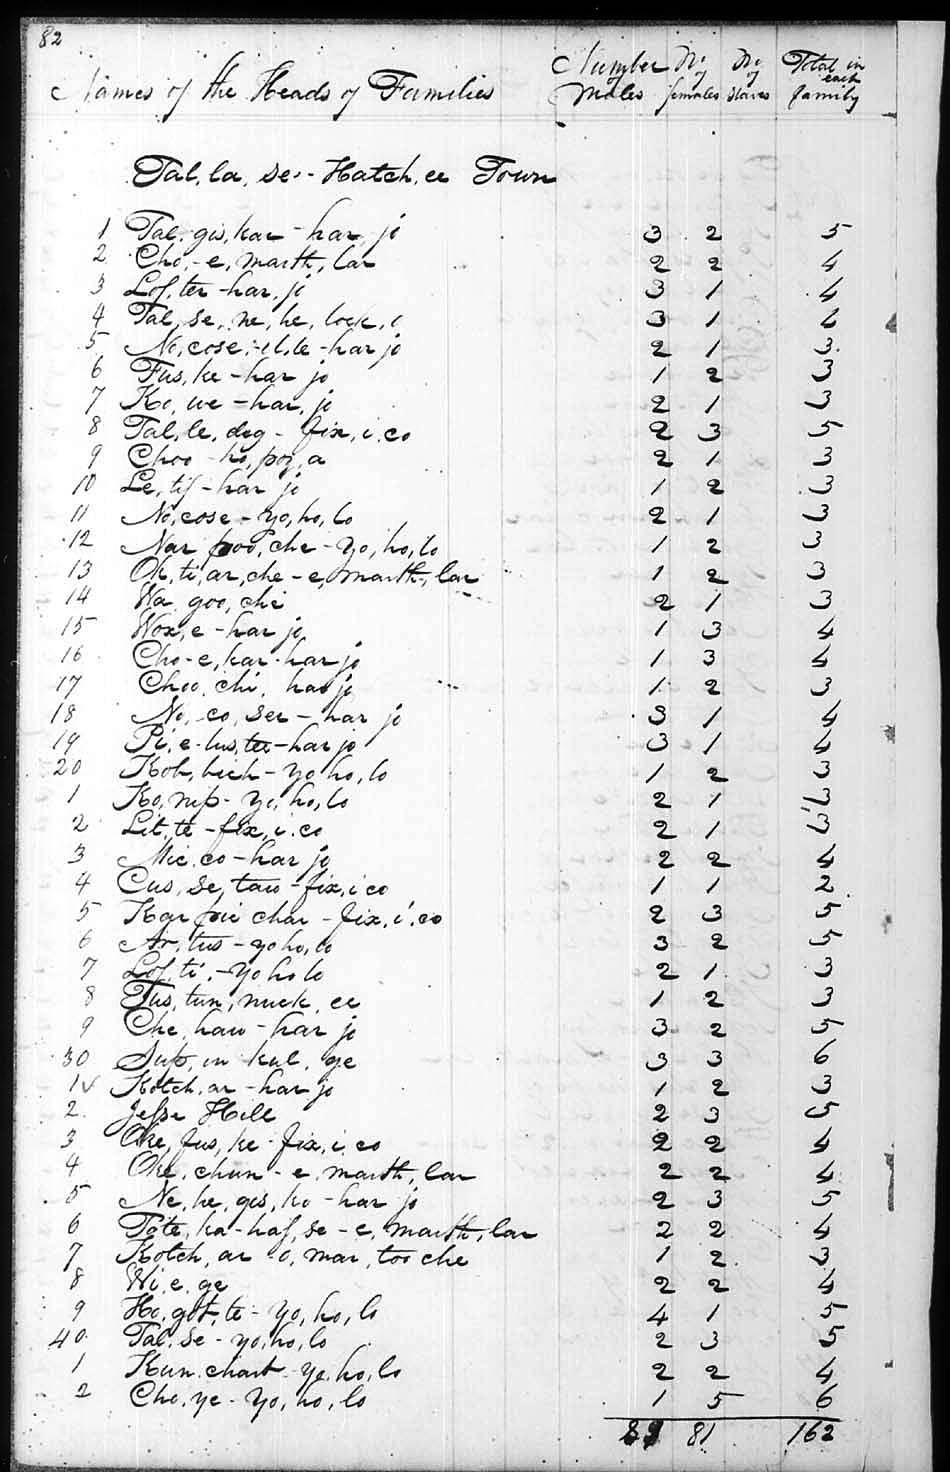 82
Names of the Heads of Families Number of Males No of females No of Slaves Total in each family
Tal, la, se - Hatch, ee Town
1 Tal, gis, kar - har, jo 3 2 5
2 Cho, - e, marth, lar 2 2 4
3 Lof, ter - har, jo 3 1 4
4 Tal, se, ne, he, lock, 3 1 4
5 No, cose, - il, le - har jo 2 1 3
6 Fus, ke - har jo 1 2 3
7 Ko, we - har, jo 2 1 3
8 Tal, le, deg - fix, i, co 2 3 5
9 Choo - ho, poy, a 2 1 3
10 Le, tif - har jo 1 2 3
11 No, cose - Yo, ho, lo 2 1 3
12 Nar poo, che - Yo, ho, lo 1 2 3
13 Ok, ti, ar, che - e, marth, lar 1 2 3
14 Wa goo, chi 2 1 3
15 Wox, e - har jo 1 3 4
16 Cho - e, kar - har jo 1 3 4
17 Choo, chi, har jo 1 2 3
18 No, - co, ser - har jo 3 1 4
19 Pi, e - lus, ter - har jo 3 1 4
20 Kob, bich - Yo ho, lo 1 2 3
1 Ko, nip - Yo, ho, lo 2 1 3
2 Lit, te - fix, i, co 2 1 3
3 Mic, co - har jo 2 2 4
4 Cus, se, taw - fix, i co 1 1 2
5 Kar pie char - fix, i, co 2 3 5
6 Ar, tus - yo ho, lo 3 2 5
7 Lof, ti, - Yo ho lo 2 1 3
8 Tus, tun, nuck, ee 1 2 3
9 Che, haw - har jo 3 2 5
30 Sup, in kul, ge 3 3 6
1 Kotch, ar - har jo 1 2 3
2 Jesse Hill 2 3 5
3 Oke, fus, ke - fix, i, co 2 2 4
4 Oke, chun - e, marth, lar 2 2 4
5 Ne, he, gis, ko - har jo 2 3 5
6 Tote, ka - haf, se - e, marth, lar 2 2 4
7 Kotch, ar - o, mar, too che 1 2 3
8 Wi, e, ge 2 2 4
9 Ho, got, te - Yo, ho, lo 4 1 5
40 Tal, se - yo, ho, lo 2 3 5
1 Kun, chart - ye, ho, lo 2 2 4
2 Cho, ye - Yo, ho, lo 1 5 6
81 162